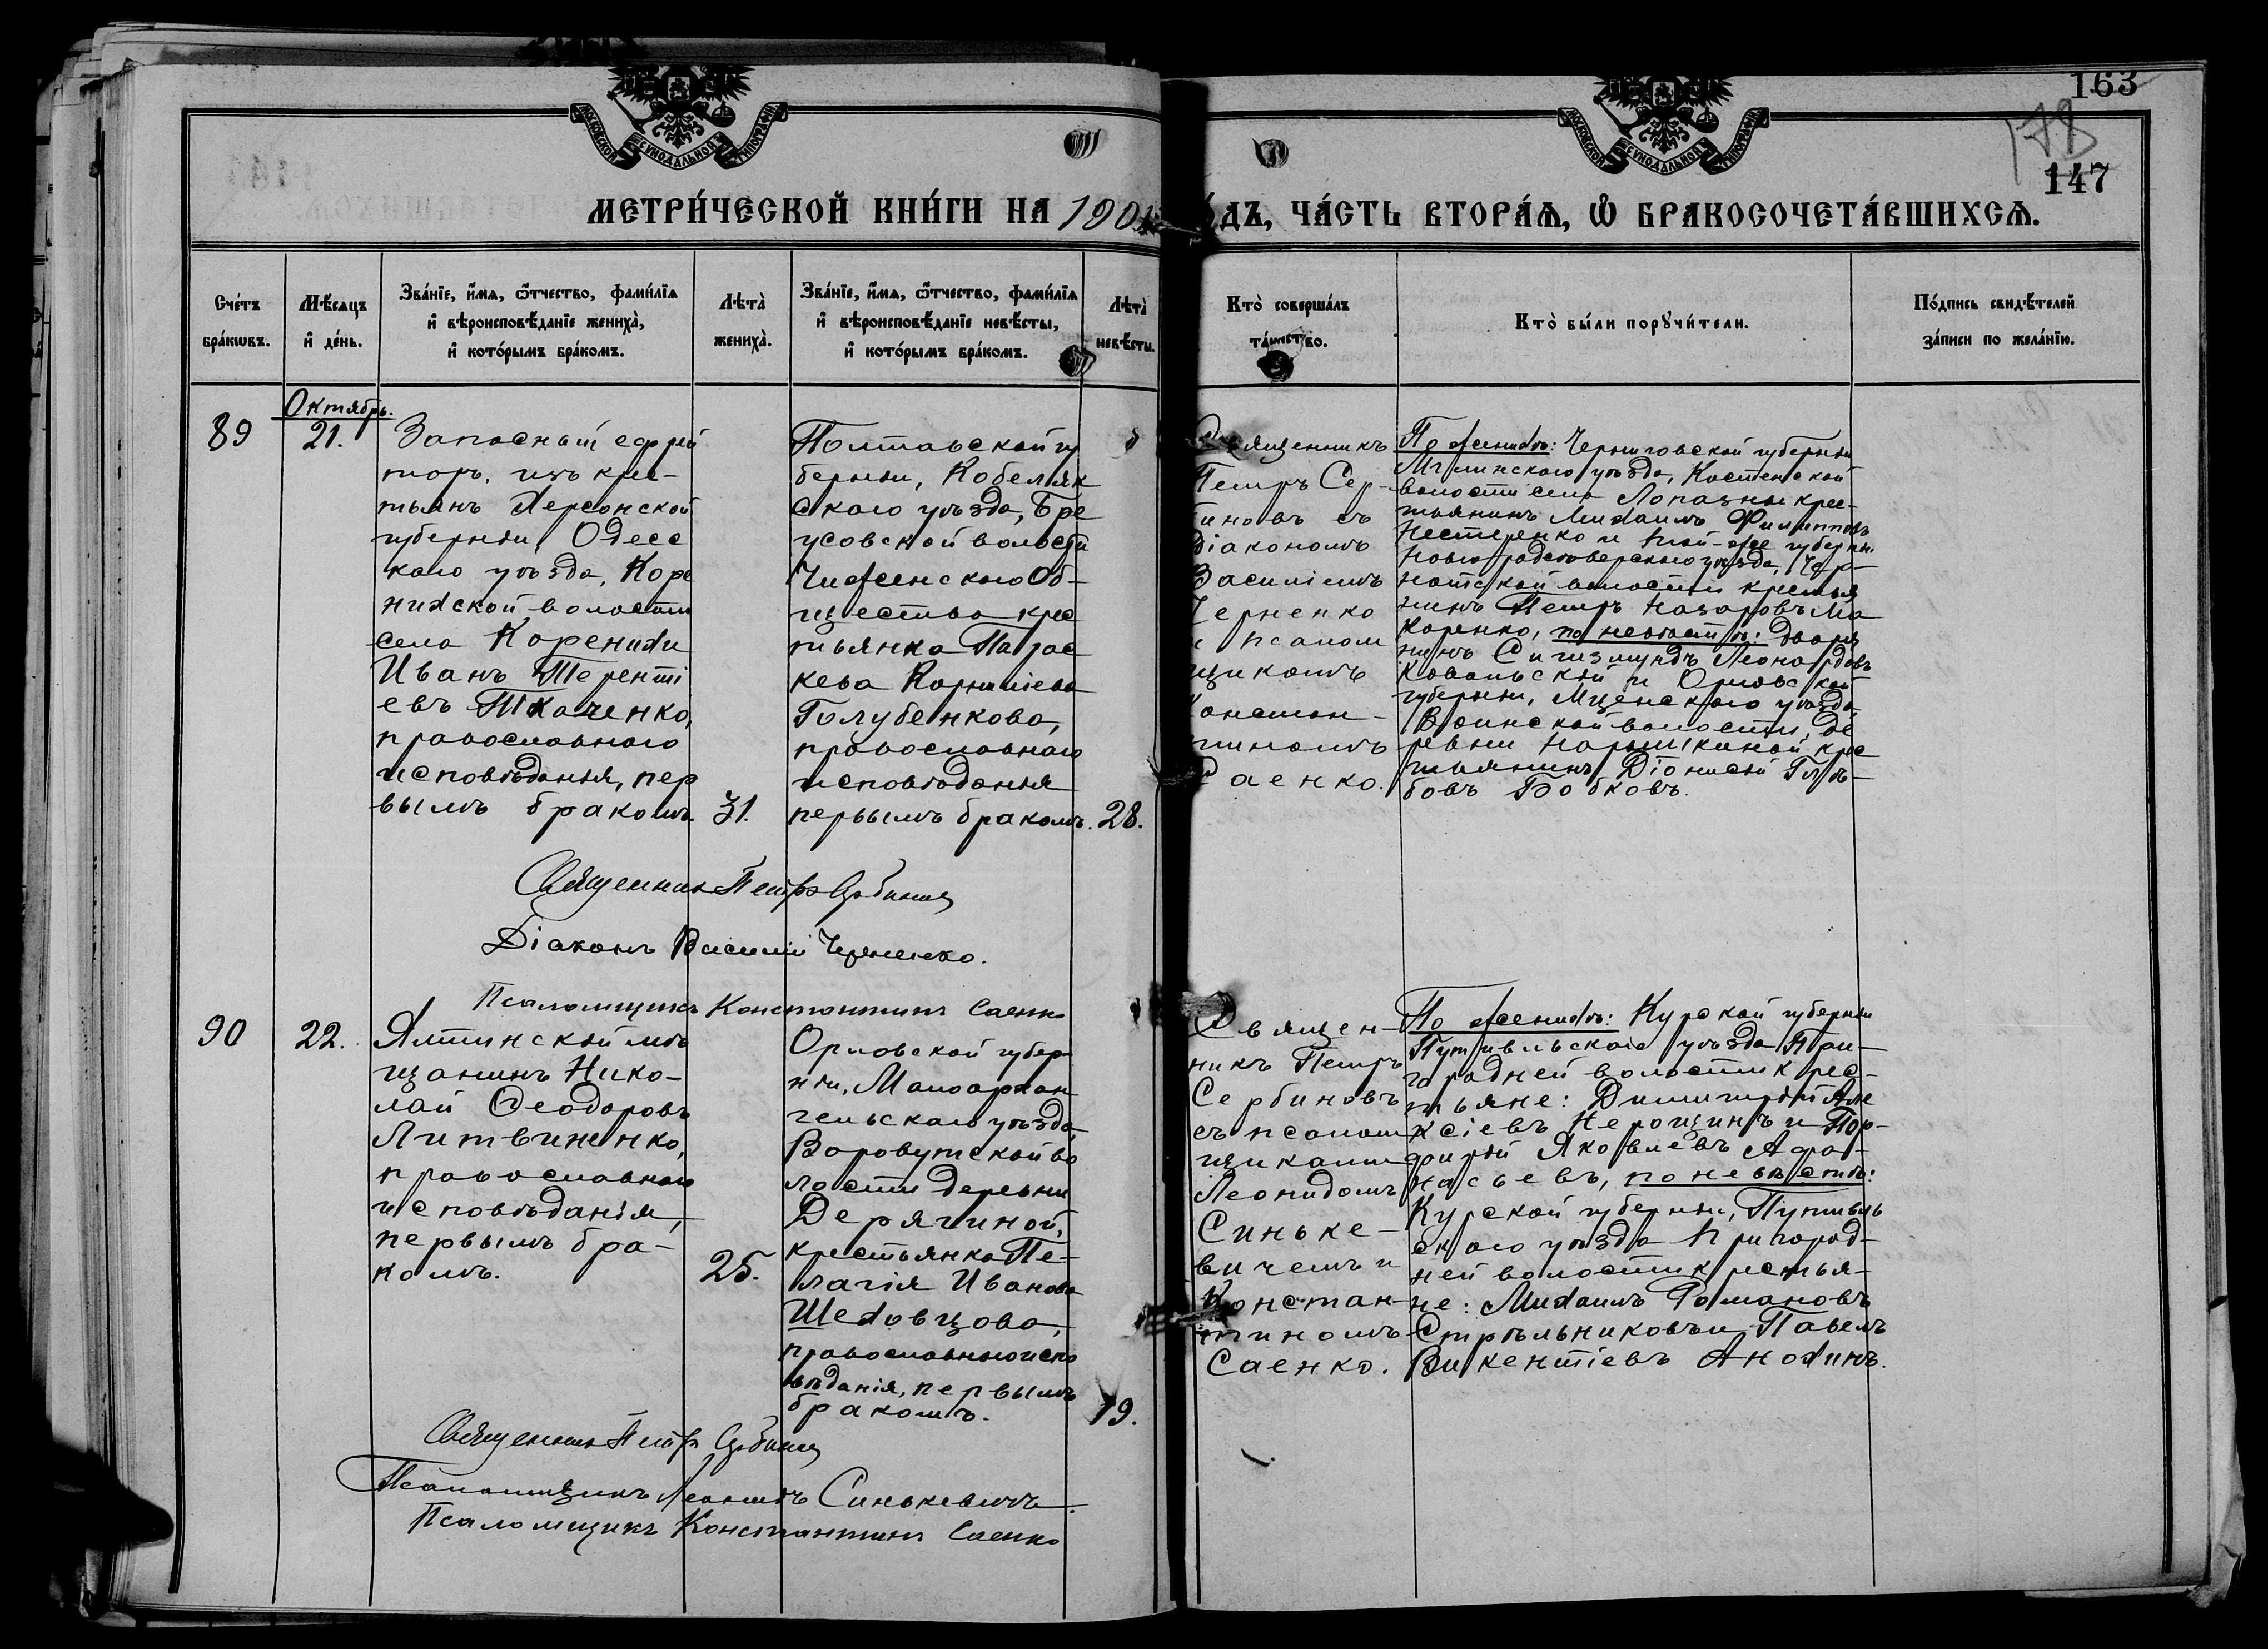 163
178
147
МОСКОВСКОЙ СѴНОДАЛЬНОЙ ТИПОГРАФІИ
МОСКОВСКОЙ СѴНОДАЛЬНОЙ ТИПОГРАФІИ
МЕТРИ́ЧЕСКОЙ КНИ́ГИ НА 190
ДЪ, ЧА́СТЬ ВТОРА́Ѧ, Ѽ БРАКОСОЧЕТА́ВШИХСѦ.
Сче́тъ
бра́кωвъ.
Мѣ́сяцъ
и҆ де́нь.
Зва́нїе, и҆́мѧ, ѻ҆́тчество, фами́лїѧ
и҆ вѣроисповѣ́данїе жениха̀,
и҆ кото́рымъ бра́комъ.
Лѣта̀
жениха̀.
Зва́нїе, и҆́мѧ, ѻ҆́тчество, фами́лїѧ
и҆ вѣроисповѣ́данїе невѣ́сты,
и҆ кото́рымъ бра́комъ.
Лѣта̀
невѣ́сты.
Кто̀ соверша́лъ
та́инство.
Кто̀ бы́ли порꙋчи́тели.
По́дпись свидѣ́телей
за́писи по жела́нїю.
89
Октябрь.
21.
Запасный ефрей
торъ, изъ крес-
тьянъ Херсонской
губерніи, Одесс
каго уѣзда, Коре
нихской волости
села Коренихи
Иванъ Теренті
евъ Ткаченко,
православнаго
исповѣданія, пер
вымъ бракомъ.
31.
Полтавской гу
берніи, Кобеляк
скаго уѣзда, Бре
усовской волости
общества крес
тьянка Парас
кева Корниліева
Голубенкова,
православнаго
исповѣданія
первымъ бракомъ.
28.
Священникъ
Петръ Сер-
биновъ съ
діакономъ
Василіемъ
Черненко
и псалом
щикомъ
Констан-
тиномъ
Саенко.
По женихѣ: Черниговской губерніи
Мглинскаго уѣзда, Костенской
волости села Лопазны крес-
тьянинъ Михаилъ Филипповъ
Нестеренко и той-же губерніи
Новгородсѣверскаго уѣзда, Чер-
натской волости крестья
нинъ Петръ Назаровъ Ма
каренко, по невѣстѣ: дворя
нинъ Сигизмундъ Леонардовъ
Ковальскій и Орловской
губерніи, Мценскаго уѣзда,
Воинской волости, де
ревни Нарышкиной крес
тьянинъ Діонисій Глѣ-
бовъ Бобковъ.
Священникъ Петръ Сербиновъ
Діаконъ Василій Черненко.
Псаломщикъ Константинъ Саенко
90
22.
Ялтинскій мѣ
щанинъ Нико-
лай Ѳеодоровъ
Литвиненко,
православнаго
исповѣданія,
первымъ бра-
комъ.
25.
Орловской губер
ніи, Малоархан
гельскаго уѣзда,
волости деревни
Дерягиной,
крестьянка Пе-
лагія Иванова
Шеховцова,
православнаго испо
вѣданія, первымъ
бракомъ.
19.
Священ-
никъ Петръ
Сербиновъ
съ псалом
щиками
Леонидомъ
Синьке-
вичемъ и
Констан-
тиномъ
Саенко.
По женихѣ: Курской губерніи
Путивльскаго уѣзда При-
городней волости крес-
тьяне: Димитрій Але
ксіевъ и Пор-
фирій Яковлевъ Афа-
насьевъ, по невѣстѣ:
Курской губерніи, Путивль
скаго уѣзда Пригород-
ней волости крестья-
не: Михаилъ Романовъ
Стрѣльниковъ и Павелъ
Викентіевъ Анохинъ.
Священникъ Петръ Сербиновъ
Псаломщикъ Леонидъ Синькевичъ.
Псаломщикъ Константинъ Саенко